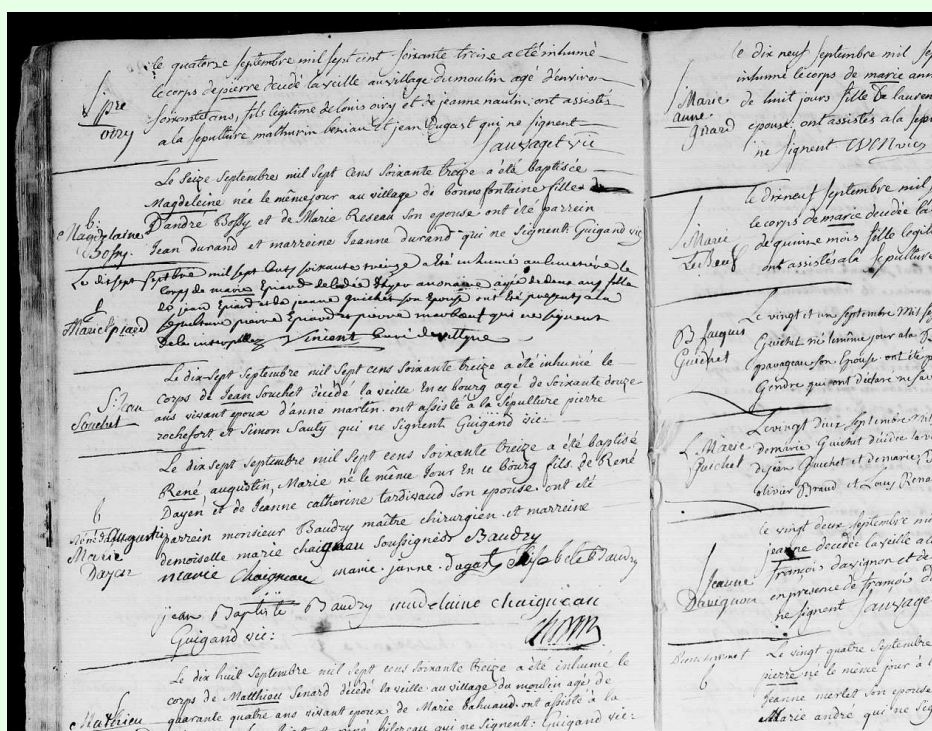 le quatorze septembre mil sept cent soixante treize a eté inhumé
le corps de pierre decedé la veille au village du moulin agé d'environ
soixante ans, fils legitime de louis oiry et de jeanne naulin, ont assistés
a la sepulture mathurin et jean Dugast qui ne signent
Sauvaget vic
S. pre
oiry
Le Seize Septembre mil Sept cens Soixante treize a été baptisée
Magdeleine nee le même jour au village de bonne fontaine fille
D'andré Bossy et de Marie Reseau Son epouse ont été parrein
Jean durand et marreine Jeanne durand qui ne Signent. Guigand vic
b.
Magdelaine
Bossy.
Le dix sept Septbre mil sept Cents soixante treize a été inhumé au Cimetière le
Corps de marie Epiard decedée agée de deux ans fille
de jean Epiard et de jeanne guichet son Epouse ont été presents a la
Sepulture pierre Epiard et pierre qui ne signent
de ce interpellez Vincent Curé de
S
Marie Epiard
Le dix-Sept Septembre mil Sept cens Soixante treize a été inhumé le
Corps de Jean Souchet décédé la veille En ce bourg agé de Soixante douze
ans vivant epoux d'anne martin. ont assisté à la Sepulture pierre
rochefort et Simon Sauty qui ne Signent Guigand vic:
S. Jean
Souchet
Le dix Sept Septembre mil Sept cens Soixante treize a été baptisé
René, augustin, Marie né le même Jour En ce bourg fils de René
Dayen et de Jeanne catherine tardivaud Son epouse. ont été
parrein monsieur Baudry maître chirurgien et marreine
demoiselle marie chaigneau Soussignés Baudry
marie Chaigneau marie-janne-dugast Elisabeth Baudry
jean Baptiste Baudry madelaine chaigneau
Guigand vic:
b
René augustin
Marie
Dayen
Le dix huit Septembre mil Sept cens Soixante treize a été inhumé le
corps de Matthieu Senard décédé la veille au village du moulin agé de
quarante quatre ans vivant epoux de Marie bahuaud. ont assisté à la
qui ne Signent: Guigand vic:
Mathieu
le dix neuf septembre mil sep
inhumé le corps de marie ann
de huit jours fille de lauren
epouse: ont assistés a la sepu
ne signent
S Marie
anne
Girard
le dix neuf septembre mil
le corps de marie decedée la
de quinze mois fille legiti
ont assistés a la Sepulture
S Marie
Le vingt et un Septembre Mil Sep
Guichet né le même jour a la
son Epouse ont été p
Gendre qui ont déclaré ne sav
B Jacques
Guichet
Le vingt deux Septembre Mil
de marie Guichet décédée la v
de jean Guichet et de marie
olivier Braud et Louis Rena
S Marie
Guichet
le vingt deux septembre mi
jeanne decedée la veille a
françois davignon et de
en presence de françois d
ne signent Sauvage
S Jeanne
Davignon
Le vingt quatre Septembre
pierre né le même jour à
Jeanne merlet son epouse
Marie andré qui ne Sig
b